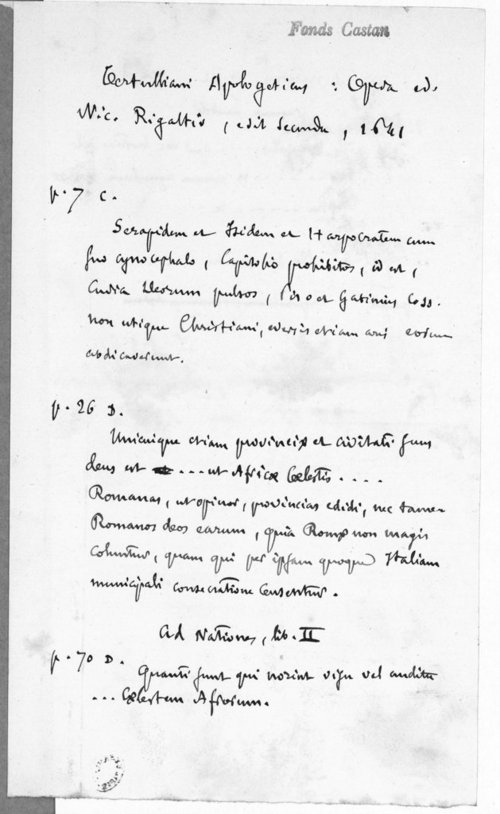 Fonds Castan
Tertulliani Apologeticus : Opera ed.
Nic. Rigaltis, edit secunda, 1641
p. 7 C.
Serapidem et Isidem et Harpocratem cum
suo cynocephalo, Capitolio prohibitos, id est,
Curia Deorum pulsos, Piso et Gabinius Coss.
non utique Christiani, eversis etiam aris eorum
abdicaverunt.
p. 26 D.
Unicuique etiam provinciæ et civitati suus
deus est ... ut Africæ Cœlestis ....
Romanas, ut opinor, provincias edidi, nec tamen
Romanos deos earum, quia Romæ non magis
coluntur, quam qui per ipsam quoque Italiam
municipali consecratione censentur.
Ad Nationes, lib. II
p. 70 D.
Quanti sunt qui norint visu vel auditu
... Cœlestem Afrorum.